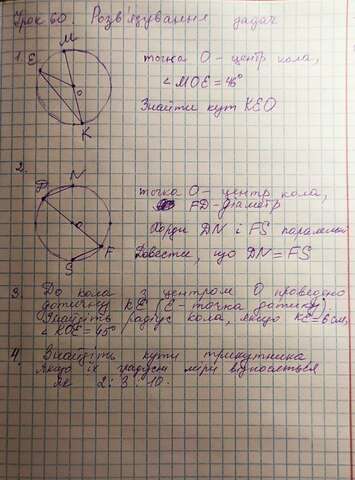 Урок 60. Розв'язування задач
1.
M
E
O
K
точка О - центр кола,
∠MOE = 48°
Знайти кут KEO
2.
D
N
O
F
S
точка О - центр кола,
FD - діаметр
Хорди DN і FS паралельні
Довести, що DN = FS
3. До кола з центром О проведено
дотичну KE (E - точка дотику).
Знайдіть радіус кола, якщо KE = 6 см,
∠KOE = 45°
4. Знайдіть кути трикутника
якщо їх градусні міри відносяться
як 2 : 3 : 10.